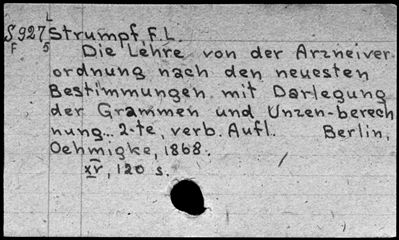 L
S927 Strumpf, F. L.
F 5 Die Lehre von der Arzneiver-
ordnung nach den neuesten
Bestimmungen mit Darlegung
der Grammen und Unzen-berech
nung... 2-te, verb. Aufl. Berlin,
Oehmigke, 1868.
XV, 120 s.